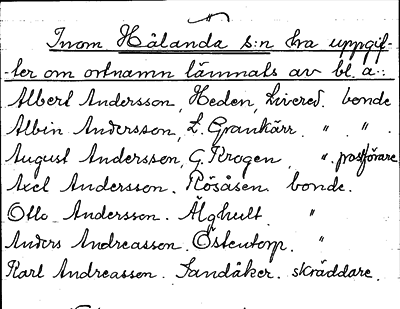 Inom Hålanda s:n ha uppgif-
ter om ortnamn lämnats av bl. a.:
Albert Andersson, Heden, Livered. bonde
Albin Andersson, L. Grankärr. " " .
August Andersson, G. Krogen, ". postförare
Axel Andersson. Rösåsen bonde.
Otto Andersson. Älghult "
Anders Andreasson. Östentorp. "
Karl Andreasson. Sandåker. skräddare.